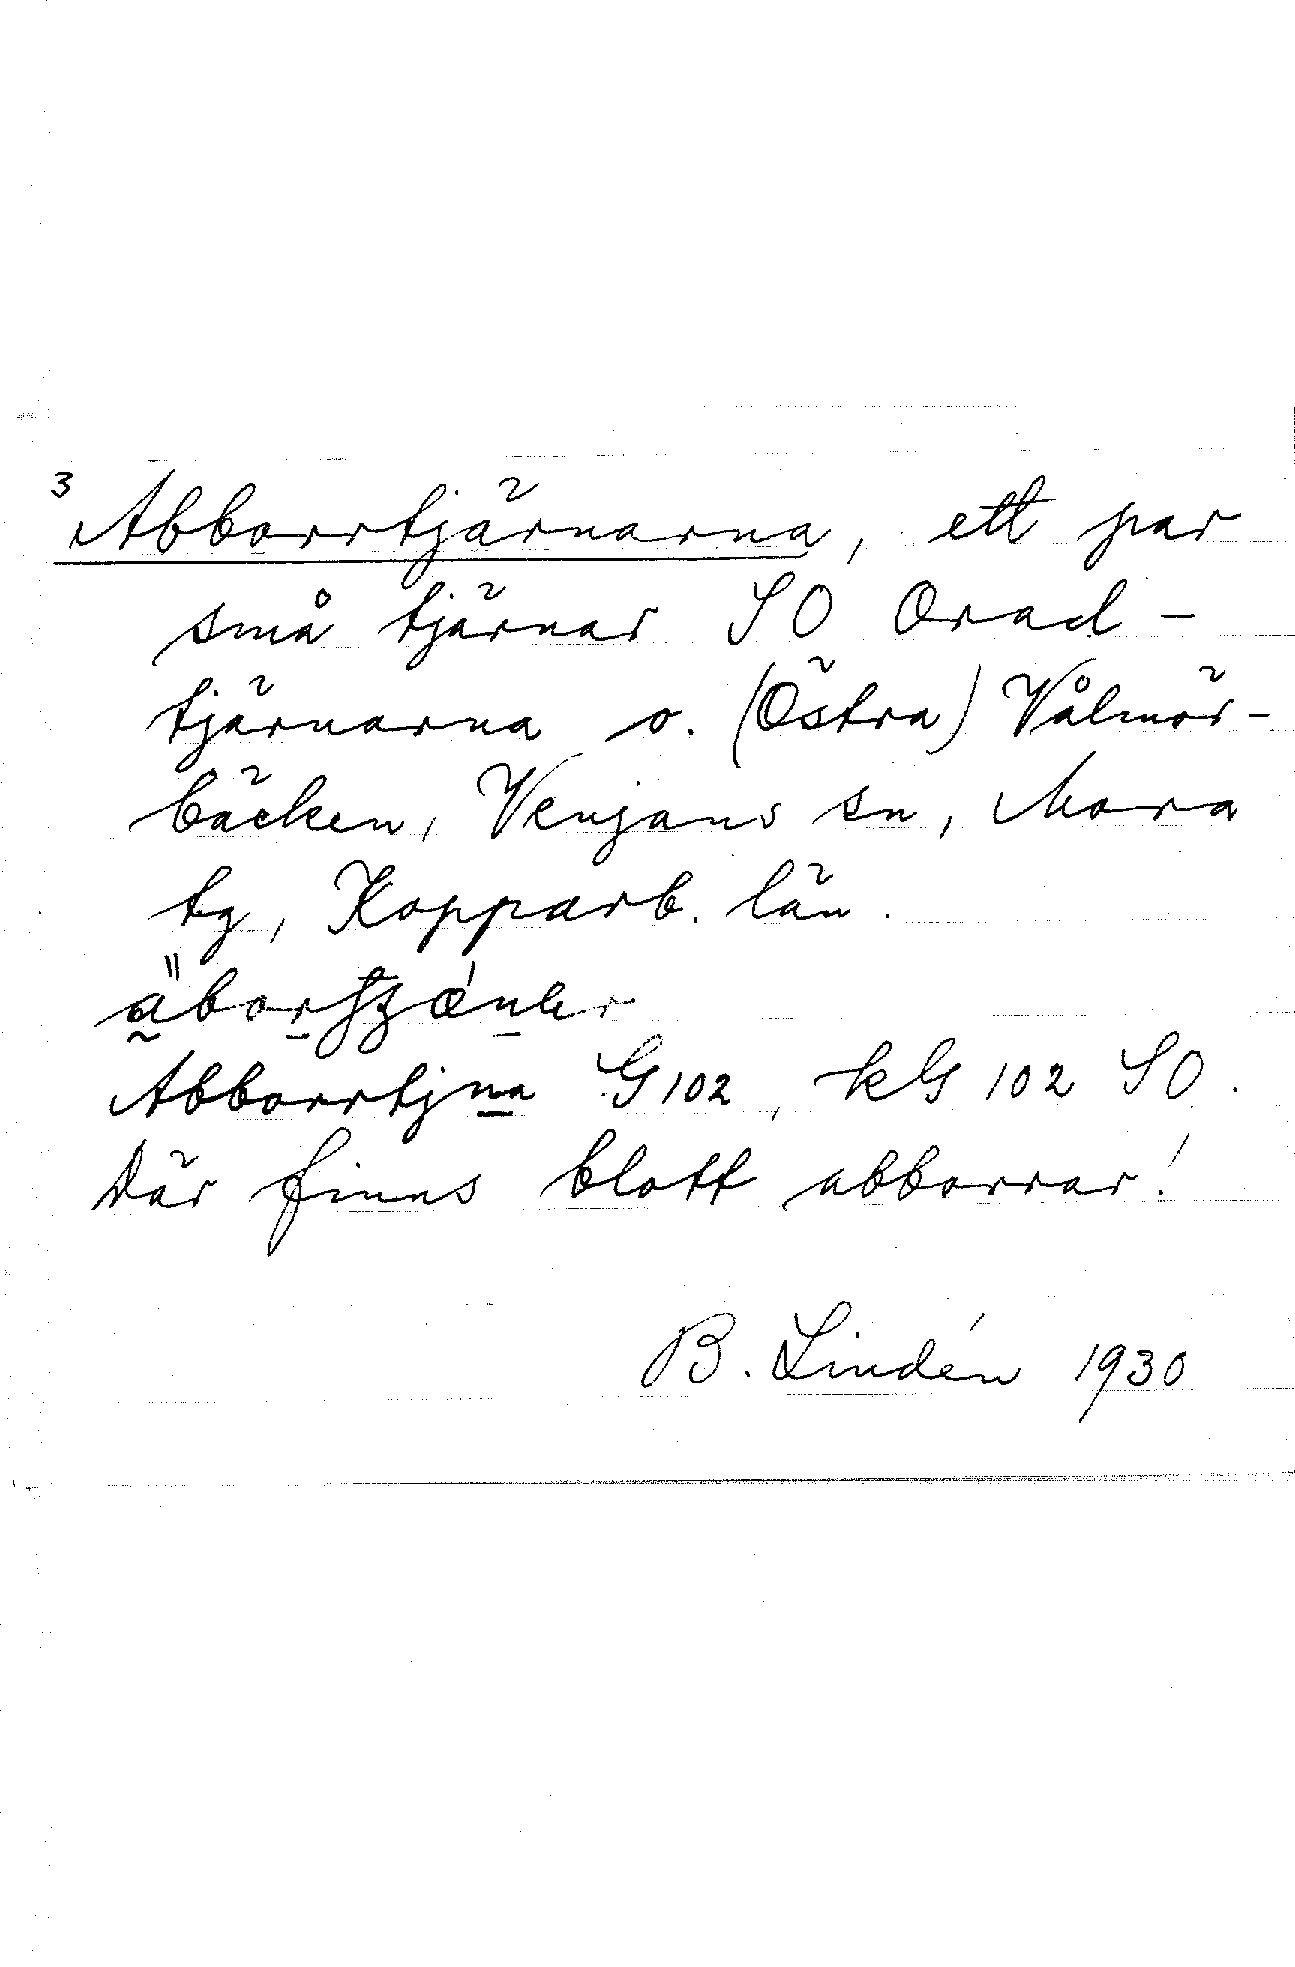 3
Abborrtjärnarna, ett par
små tjärnar SO Orad-
tjärnarna o. (Östra) Vålmör-
bäcken, Venjans sn, Mora
tg, Kopparb. län.
Abborrtjna G102, kG 102 SO.
Där finns blott abborrar!
B. Lindén 1930